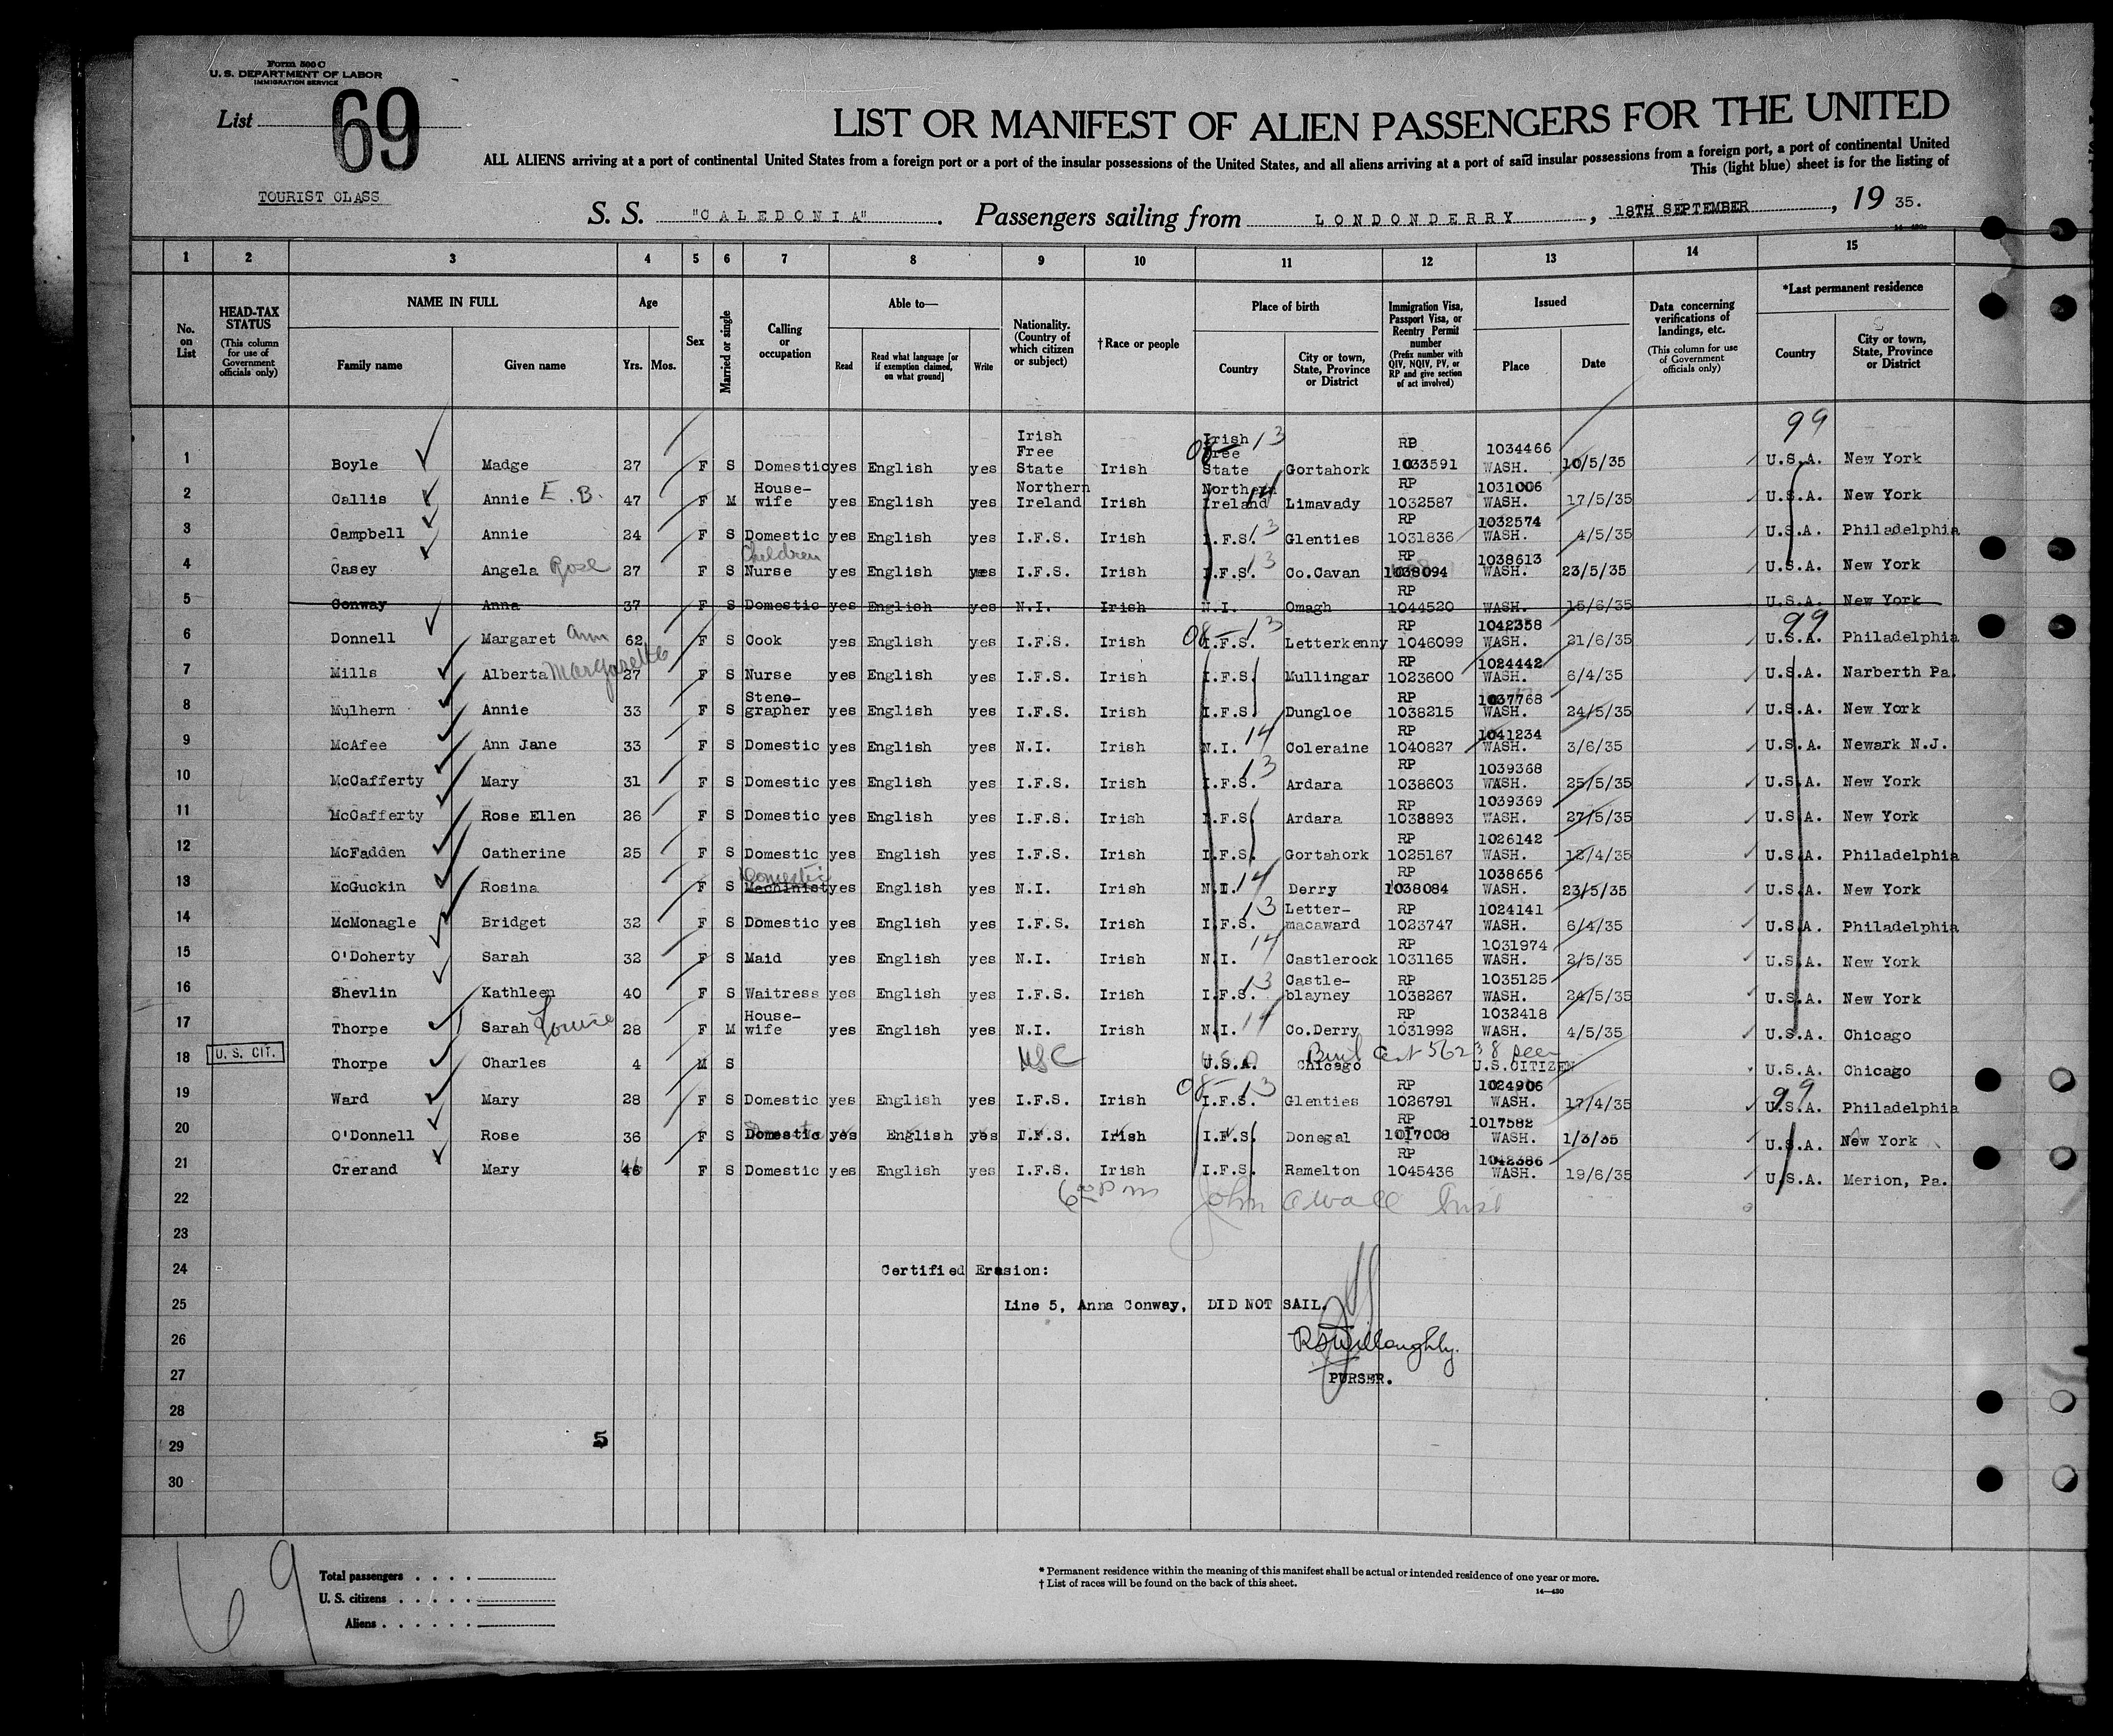 Form 500 C
U. S. DEPARTMENT OF LABOR
IMMIGRATION SERVICE
List 69
LIST OR MANIFEST OF ALIEN PASSENGERS FOR THE UNITED
ALL ALIENS arriving at a port of continental United States from a foreign port or a port of the insular possessions of the United States, and all aliens arriving at a port of said insular possessions from a foreign port, a port of continental United
This (light blue) sheet is for the listing of
TOURIST CLASS
S. S. "CALEDONIA". Passengers sailing from LONDONDERRY, 18TH SEPTEMBER, 19 35.
1 2 3 4 5 6 7 8 9 10 11 12 13 14 15
No. on List
HEAD-TAX STATUS (This column for use of Government officials only)
NAME IN FULL
Family name Given name
Age
Yrs. Mos.
Sex
Married or single
Calling or occupation
Able to—
Read Read what language [or if exemption claimed, on what ground] Write
Nationality. (Country of which citizen or subject)
†Race or people
Place of birth
Country City or town, State, Province or District
Immigration Visa, Passport Visa, or Reentry Permit number (Prefix number with QIV, NQIV, PV, or RP and give section of act involved)
Issued
Place Date
Data concerning verifications of landings, etc. (This column for use of Government officials only)
*Last permanent residence
Country City or town, State, Province or District
99
1 Boyle Madge 27 F S Domestic yes English yes Irish Free State Irish Irish Free State 08-13 Gortahork RP 1033591 1034466 WASH. 10/5/35 U.S.A. New York
2 Callis Annie E.B. 47 F M House-wife yes English yes Northern Ireland Irish Northern Ireland 14 Limavady RP 1032587 1031006 WASH. 17/5/35 U.S.A. New York
3 Campbell Annie 24 F S Domestic yes English yes I.F.S. Irish I.F.S. 13 Glenties RP 1031836 1032574 WASH. 4/5/35 U.S.A. Philadelphia
4 Casey Angela Rose 27 F S Children Nurse yes English yes I.F.S. Irish I.F.S. 13 Co.Cavan RP 1038094 1038613 WASH. 23/5/35 U.S.A. New York
5 Conway Anna 37 F S Domestic yes English yes N.I. Irish N.I. Omagh RP 1044520 WASH. 15/6/35 U.S.A. New York
99
6 Donnell Margaret Ann 62 F S Cook yes English yes I.F.S. Irish 08-13 I.F.S. Letterkenny RP 1046099 1042358 WASH. 21/6/35 U.S.A. Philadelphia
7 Mills Alberta Margaretta 27 F S Nurse yes English yes I.F.S. Irish I.F.S. Mullingar RP 1023600 1024442 WASH. 6/4/35 U.S.A. Narberth Pa.
8 Mulhern Annie 33 F S Steno-grapher yes English yes I.F.S. Irish I.F.S. Dungloe RP 1038215 1037768 WASH. 24/5/35 U.S.A. New York
9 McAfee Ann Jane 33 F S Domestic yes English yes N.I. Irish N.I. 14 Coleraine RP 1040827 1041234 WASH. 3/6/35 U.S.A. Newark N.J.
10 McCafferty Mary 31 F S Domestic yes English yes I.F.S. Irish I.F.S. 13 Ardara RP 1038603 1039368 WASH. 25/5/35 U.S.A. New York
11 McCafferty Rose Ellen 26 F S Domestic yes English yes I.F.S. Irish I.F.S. Ardara RP 1038893 1039369 WASH. 27/5/35 U.S.A. New York
12 McFadden Catherine 25 F S Domestic yes English yes I.F.S. Irish I.F.S. Gortahork RP 1025167 1026142 WASH. 12/4/35 U.S.A. Philadelphia
13 McGuckin Rosina F S Domestic Machinist yes English yes N.I. Irish N.I. 14 Derry RP 1038084 1038656 WASH. 23/5/35 U.S.A. New York
14 McMonagle Bridget 32 F S Domestic yes English yes I.F.S. Irish I.F.S. 13 Letter-macaward RP 1023747 1024141 WASH. 6/4/35 U.S.A. Philadelphia
15 O'Doherty Sarah 32 F S Maid yes English yes N.I. Irish N.I. 14 Castlerock RP 1031165 1031974 WASH. 2/5/35 U.S.A. New York
16 Shevlin Kathleen 40 F S Waitress yes English yes I.F.S. Irish I.F.S. 13 Castle-blayney RP 1038267 1035125 WASH. 24/5/35 U.S.A. New York
17 Thorpe Sarah Louise 28 F M House-wife yes English yes N.I. Irish N.I. 14 Co.Derry RP 1031992 1032418 WASH. 4/5/35 U.S.A. Chicago
18 U. S. CIT. Thorpe Charles 4 M S USC U.S.A. Chicago 56238 seen U.S.CITIZEN U.S.A. Chicago
99
19 Ward Mary 28 F S Domestic yes English yes I.F.S. Irish 08-13 I.F.S. Glenties RP 1026791 1024906 WASH. 17/4/35 U.S.A. Philadelphia
20 O'Donnell Rose 36 F S Domestic yes English yes I.F.S. Irish I.F.S. Donegal RP 1017008 1017582 WASH. 1/3/35 U.S.A. New York
21 Crerand Mary 46 F S Domestic yes English yes I.F.S. Irish I.F.S. Ramelton RP 1045436 1042386 WASH. 19/6/35 U.S.A. Merion, Pa.
22 John
23
24 Certified Erasion:
25 Line 5, Anna Conway, DID NOT SAIL.
26 R Willoughby.
27 PURSER.
28
29 5
30
69
Total passengers
U. S. citizens
Aliens
* Permanent residence within the meaning of this manifest shall be actual or intended residence of one year or more.
† List of races will be found on the back of this sheet.
14—430